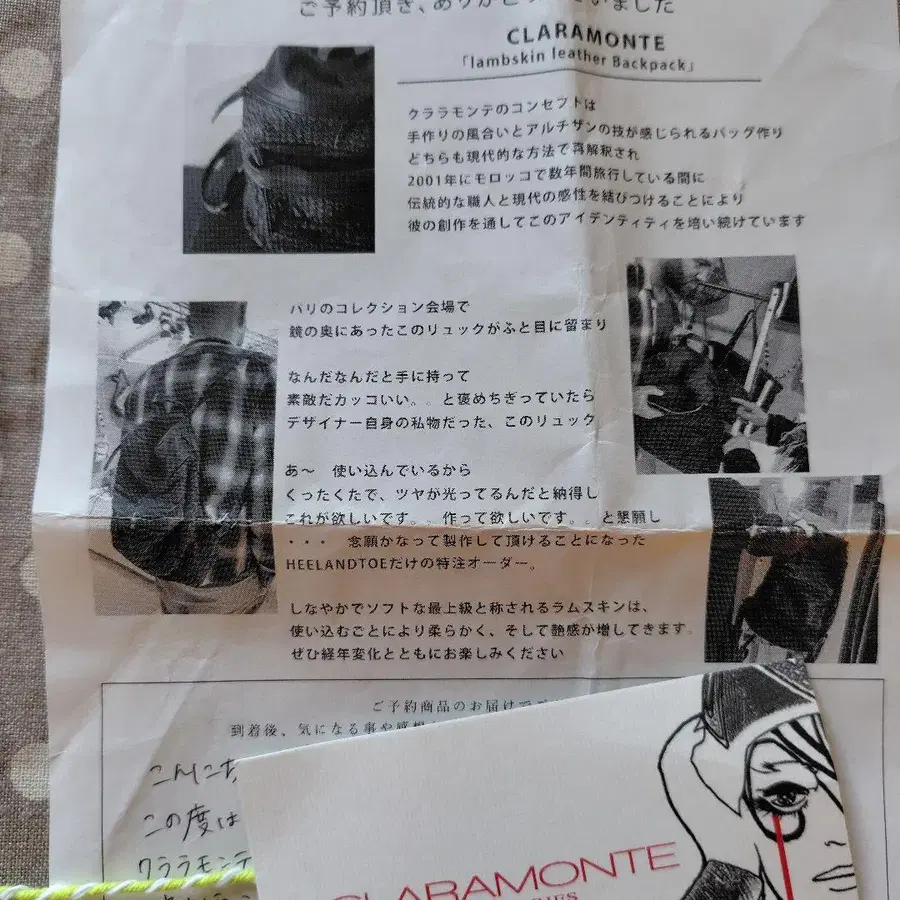 ご予約頂き、ありがとうございました
CLARAMONTE
「lambskin leather Backpack」
クララモンテのコンセプトは
手作りの風合いとアルチザンの技が感じられるバッグ作り
どちらも現代的な方法で再解釈され
2001年にモロッコで数年間旅行している間に
伝統的な職人と現代の感性を結びつけることにより
彼の創作を通してこのアイデンティティを培い続けています
パリのコレクション会場で
鏡の奥にあったこのリュックがふと目に留まり
なんだなんだと手に持って
素敵だカッコいい。。と褒めちぎっていたら
デザイナー自身の私物だった、このリュック
あ～　使い込んでいるから
くったくたで、ツヤが光ってるんだと納得し
これが欲しいです。。作って欲しいです。。と懇願し
・・・　念願かなって製作して頂けることになった
HEELANDTOEだけの特注オーダー。
しなやかでソフトな最上級と称されるラムスキンは、
使い込むごとにより柔らかく、そして艶感が増してきます。
ぜひ経年変化とともにお楽しみください
ご予約商品のお届けで
到着後、気になる事や感想
こんにち
この度は
クララモンテ
CLARAMONTE